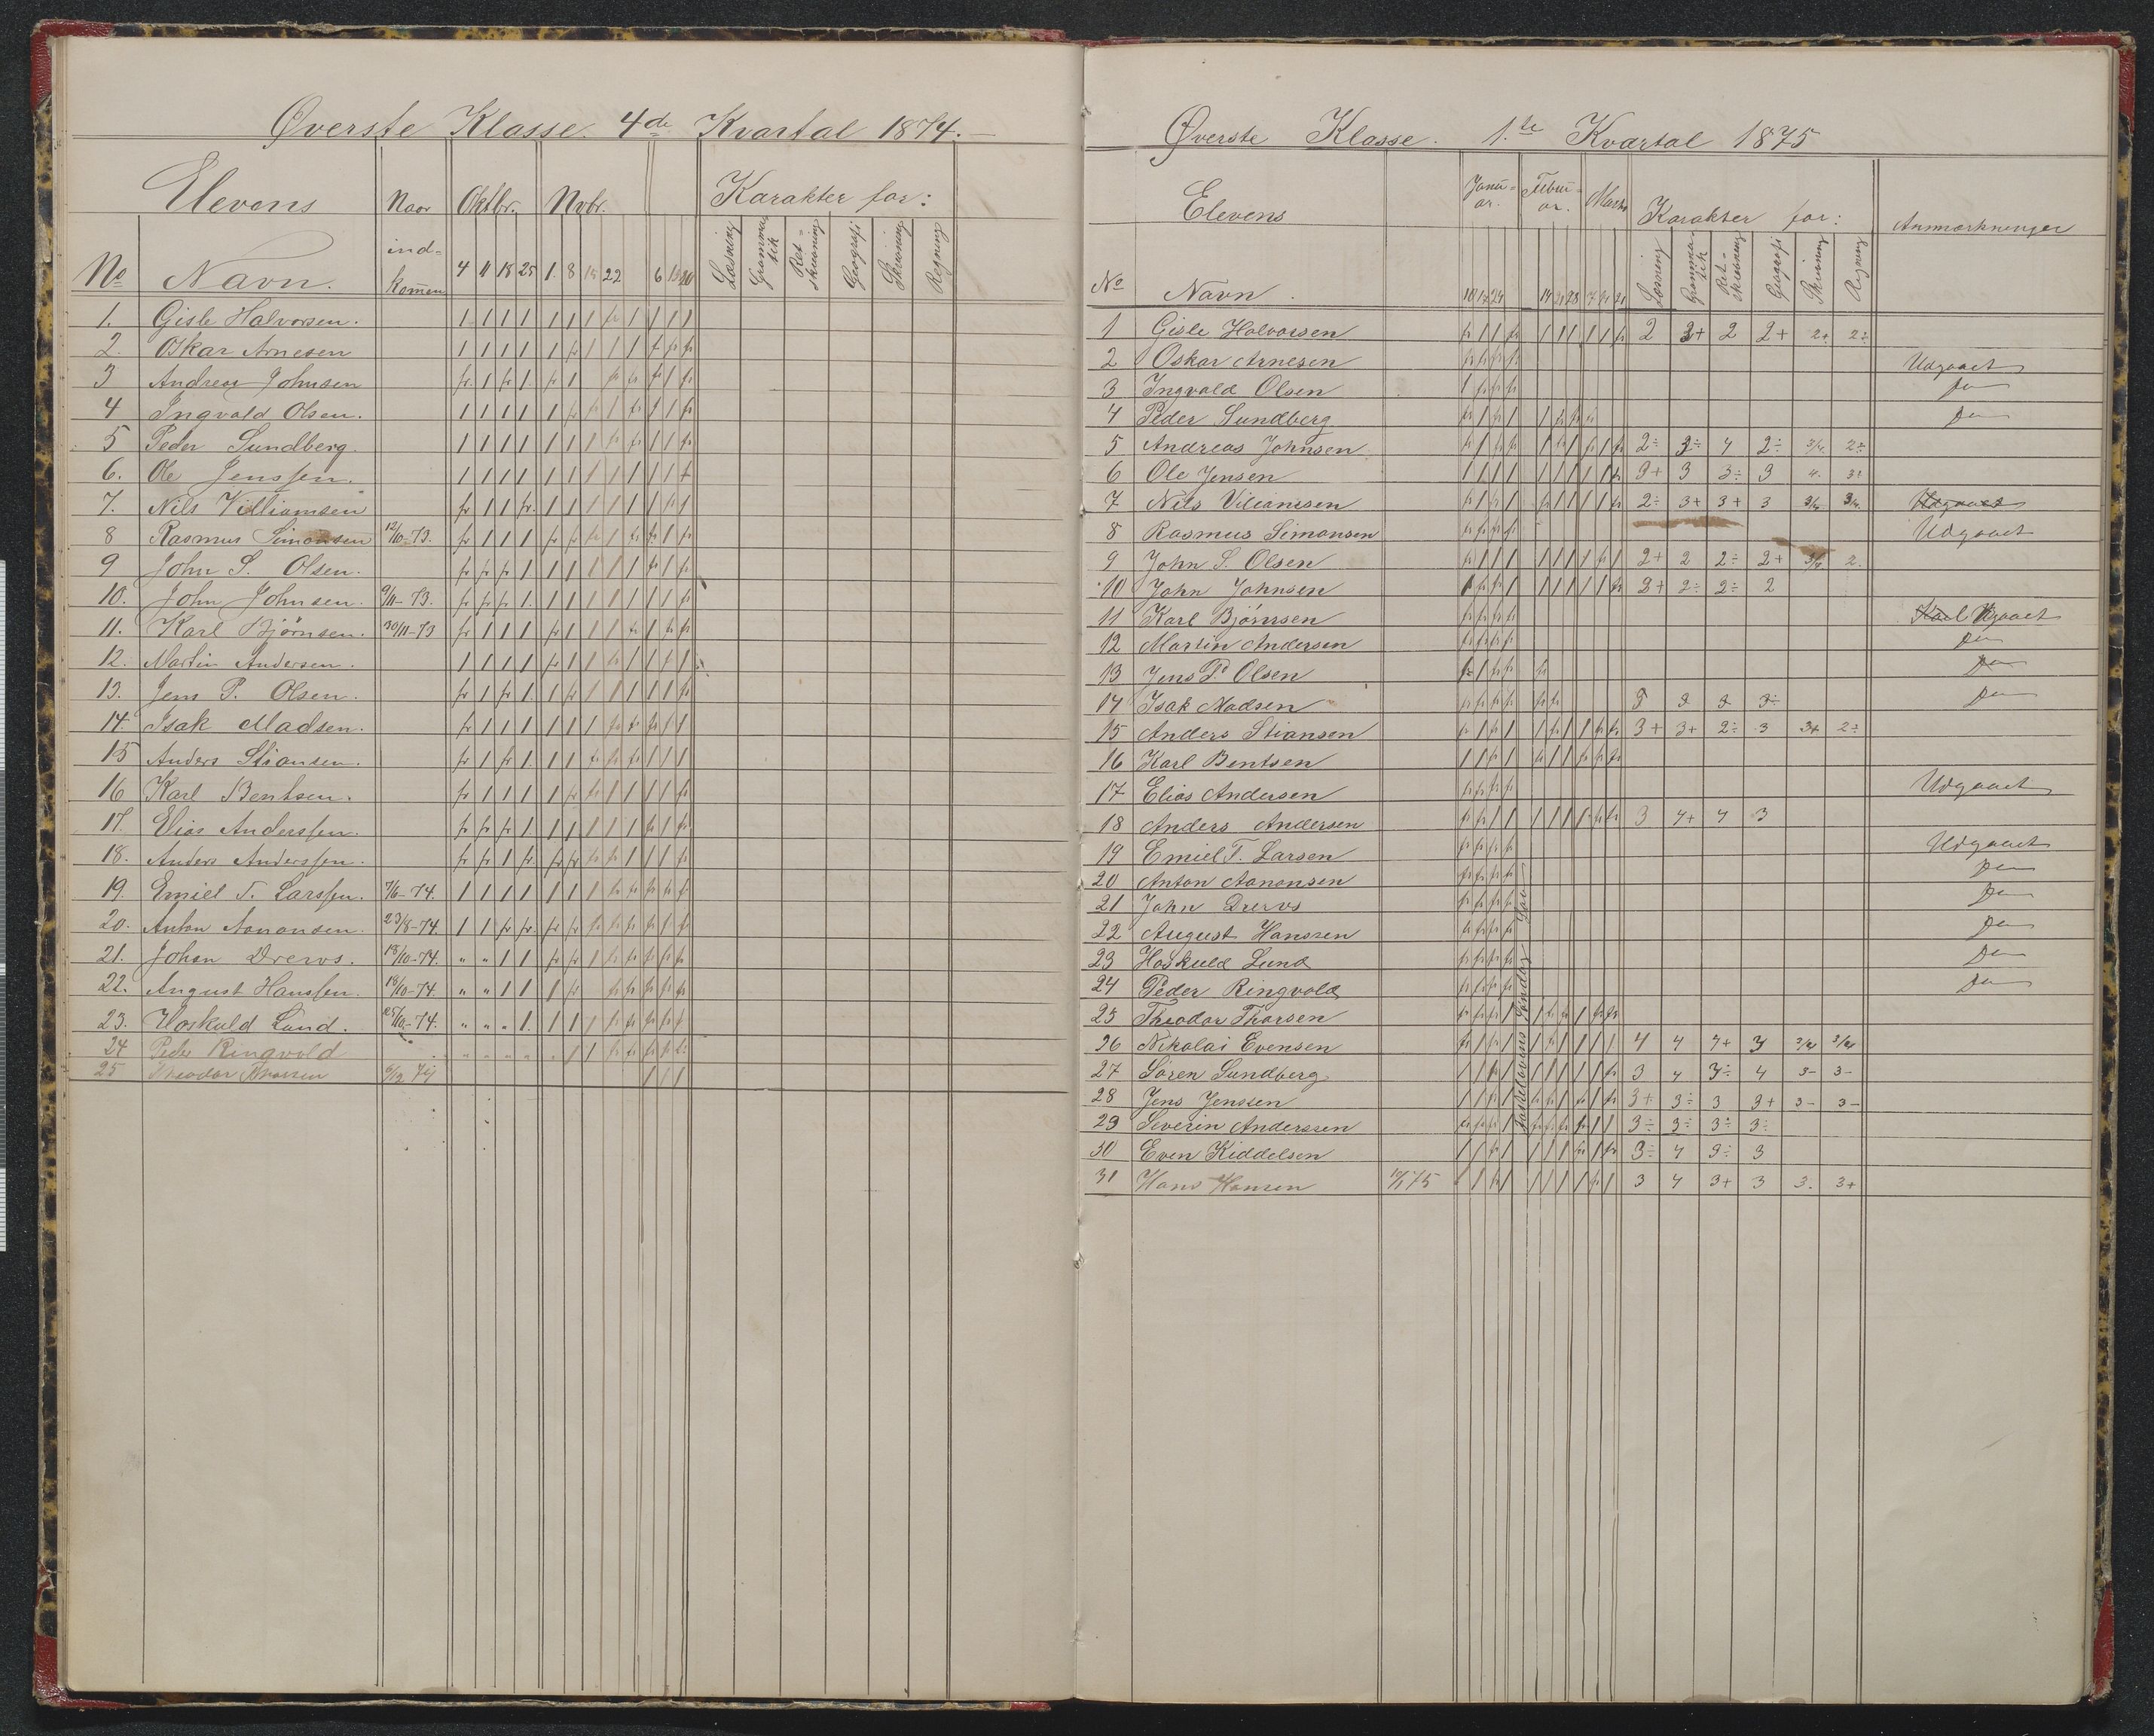 Øverste Klasse. 4de Kvartal 1874.
Elevens
Naar ind-komen
Oktbr.
Nvbr.
Karakter for:
No Navn.
4 11 18 25 1. 8 15 22 6 13 20
Læsning
Gramma-tik
Ret-skrivning
Geografi
Skrivning
Regning
1. Gisle Halvorsen.
2. Oskar Arnesen
3 Andreas Johnsen
4 Ingvald Olsen.
5 Peder Sundberg.
6. Ole Jenssen.
7. Nils Villiamsen
8 Rasmus Simonsen 12/10-73.
9 John S. Olsen.
10. John Johnsen. 9/11-73.
11. Karl Bjørnsen. 30/11-73
12. Martin Andersen.
13. Jens P. Olsen.
14. Isak Madsen.
15 Anders Stiansen.
16 Karl Bentsen.
17. Elias Anderssen.
18. Anders Anderssen.
19. Emiel T. Larssen. 7/6-74.
20. Anton Aanonsen. 23/8-74.
21. Johan Drevs. 18/10-74.
22. August Hanssen. 18/10-74.
23. Hoskuld Lund. 25/10-74.
24 Peder Ringvold
25 Theodor Thorsen 6/12 74
Øverste Klasse. 1.te Kvartal 1875
Elevens
Janu-ar.
Febru-ar.
Marts
Karakter for:
Anmærkninger
No Navn.
10 17 24 14 21 28 7 14 21
Læsning
Gramma-tik
Ret-skrivning
Geografi
Skrivning
Regning
1 Gisle Halvorsen 2 3+ 2 2+ 2+ 2÷
2 Oskar Arnesen Udgaaet
3 Ingvald Olsen do
4 Peder Sundberg do
5 Andreas Johnsen 2÷ 3÷ 4 2÷ 3/4 2÷
6 Ole Jensen 3+ 3 3÷ 3 4. 3÷
7 Nils Viliamsen 2÷ 3+ 3+ 3 3/4 3/4 Udgaaet
8 Rasmus Simonsen Udgaaet
9 John S. Olsen 2+ 2 2÷ 2+ 3/4 2.
10 John Johnsen 2+ 2÷ 2÷ 2
11 Karl Bjørnsen Karl Udgaaet
12 Martin Andersen do
13 Jens P. Olsen do
14 Isak Madsen 3 3 3 3÷ do
15 Anders Stiansen 3+ 3+ 2÷ 3 3+ 2÷
16 Karl Bentsen
17 Elias Andersen Udgaaet
18 Anders Andersen 3 4+ 4 3
19 Emiel T. Larsen Udgaaet
20 Anton Aanonsen do
21 John Drevs do
22 August Hanssen do
23 Hoskuld Lund do
24 Peder Ringvold do
25 Theodor Thorsen
26 Nikolai Evensen 4 4 4+ 3 3/4 3/4
27 Søren Sundberg 3 4 3÷ 4 3- 3-
28 Jens Jenssen 3+ 3÷ 3 3+ 3- 3-
29 Severin Anderssen 3÷ 3÷ 3÷ 3÷
30 Even Kiddelsen 3÷ 4 3÷ 3
31 Hans Hansen 10/1 75 3 4 3+ 3 3. 3+
Fastelavens Søndag